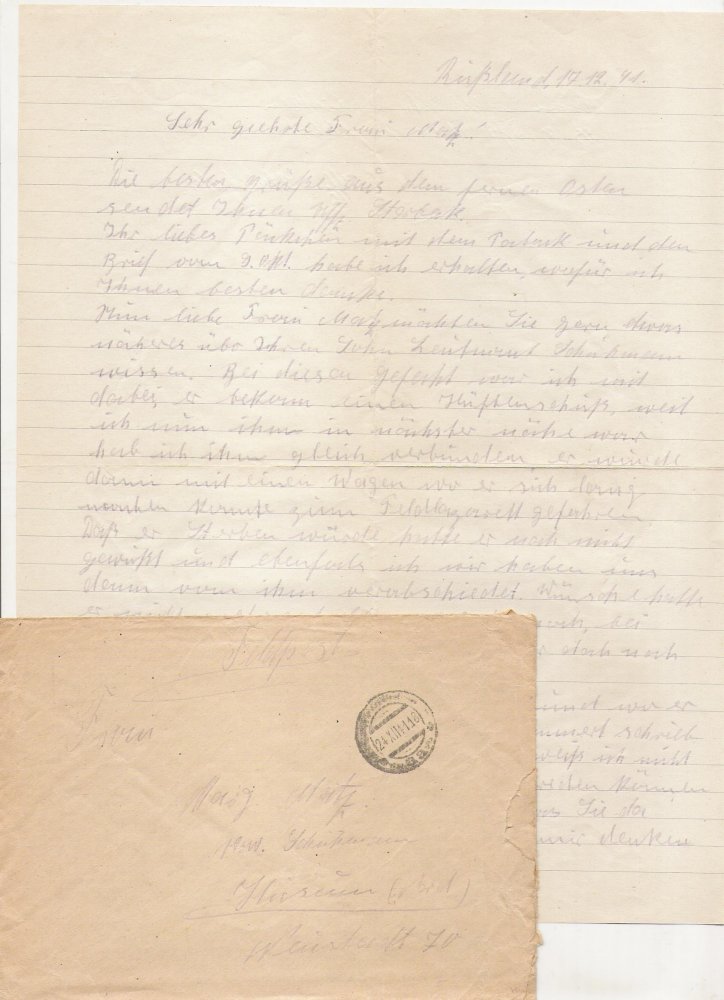 Rußland, 17.12.41.
Sehr geehrte Frau Matz!
Die besten Grüße aus dem fernen Osten
sendet Ihnen Uffz.
Ihr liebes mit dem Taback und den
Brief vom 9. Okt. habe ich erhalten, wofür ich
Ihnen besten danke.
Nun liebe Frau Matz möchten Sie gern etwas
näheres über Ihren Sohn Leutnant Schükmann
wissen. Bei diesen Gefecht war ich mit
dabei, er bekam einen Hüftenschuß, weil
ich nun ihm in nächster nähe war
hab ich ihm gleich verbunden er wurde
dann mit einen Wagen wo er sich lang
machen konnte zum Feldlazarett gefahren
Daß er Sterben würde hatte er noch nicht
gewußt und ebenfals ich wir haben uns
dann von ihm verabschiedet. Wünsche hatte
er nicht
noch, bei
doch noch
und wo er
schrieb
weiß ich nicht
können
Sie da
mir denken
Feldpost
Frau
Matz
Schükmann
Husum (Nord.)
70
24.XII.41.16